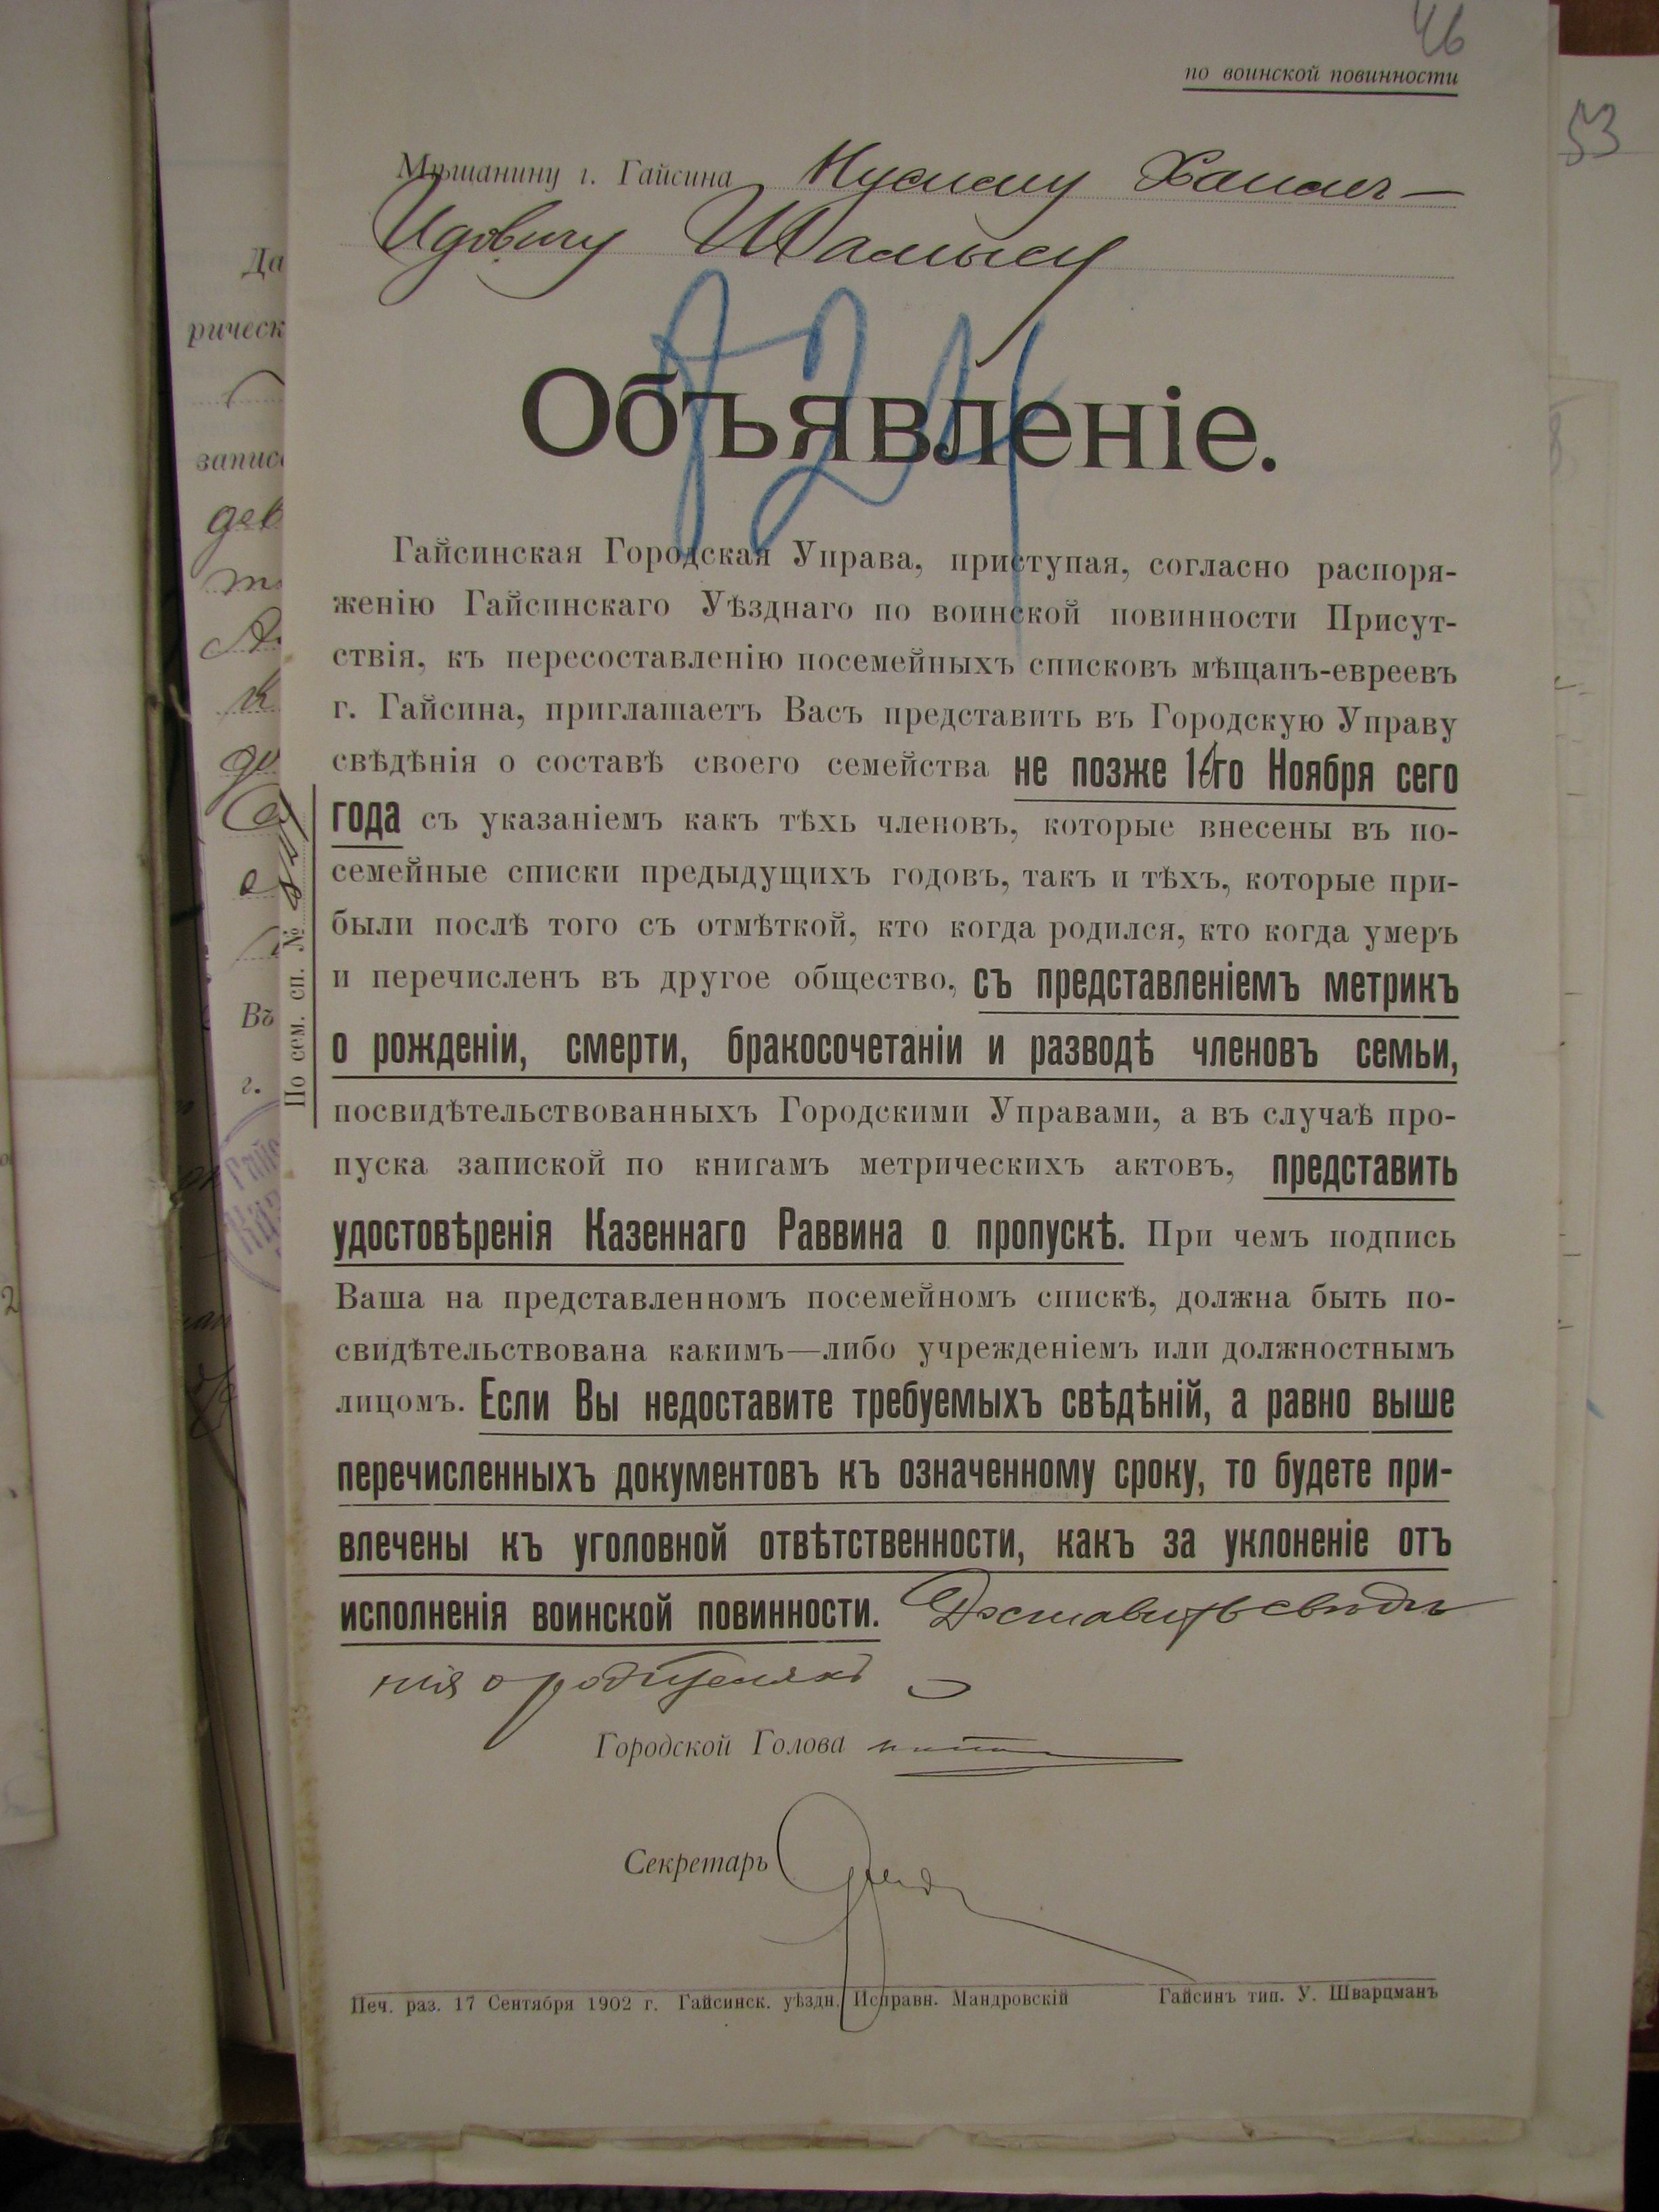 46
по воинской повинности
53
Мѣщанину г. Гайсина Нусиму Хаимъ-
Идовичу Шамысу
Объявленіе.
Гайсинская Городская Управа, приступая, согласно распоря-
женію Гайсинскаго Уѣзднаго по воинской повинности Присут-
ствія, къ пересоставленію посемейныхъ списковъ мѣщанъ-евреевъ
г. Гайсина, приглашаетъ Васъ представить въ Городскую Управу
свѣдѣнія о составѣ своего семейства не позже 1-го Ноября сего
года съ указаніемъ какъ тѣхъ членовъ, которые внесены въ по-
семейные списки предыдущихъ годовъ, такъ и тѣхъ, которые при-
были послѣ того съ отмѣткой, кто когда родился, кто когда умеръ
и перечисленъ въ другое общество, съ представленіемъ метрикъ
о рожденіи, смерти, бракосочетаніи и разводѣ членовъ семьи,
посвидѣтельствованныхъ Городскими Управами, а въ случаѣ про-
пуска запиской по книгамъ метрическихъ актовъ, представить
удостовѣренія Казеннаго Раввина о пропускѣ. При чемъ подпись
Ваша на представленномъ посемейномъ спискѣ, должна быть по-
свидѣтельствована какимъ—либо учрежденіемъ или должностнымъ
лицомъ. Если Вы недоставите требуемыхъ свѣдѣній, а равно выше
перечисленныхъ документовъ къ означенному сроку, то будете при-
влечены къ уголовной отвѣтственности, какъ за уклоненіе отъ
исполненія воинской повинности. Доставить свѣдѣ
нія о родителяхъ
Городской Голова
Секретарь
Печ. раз. 17 Сентября 1902 г. Гайсинск. уѣздн. Исправн. Мандровскій Гайсинъ тип. У. Шварцманъ
По сем. сп. №
Да
рическ
запис
Въ
г.